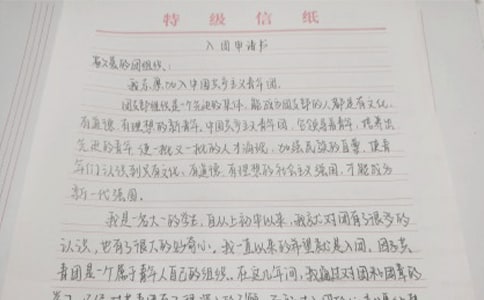 特级信纸
入团申请书
敬爱的团组织:
我志愿加入中国共产主义青年团。
团支部组织是一个先进的集体,能成为团支部的人都是有文化、
有道德、有理想的新青年。中国共产主义青年团,它领导着青年,培养出
先进的青年,使一批又一批的人才涌现,加强民族的自尊,使青
年们认识到只有文化、有道德、有理想的社会主义强国,才能成为
新一代强国。
我是一名大一的学生,自从上初中以来,我就对团有了很多的
认识,也有了很大的好奇心。我一直以来的希望就是入团。因为共
青团是一个属于青年人自己的组织。在这几年间,我通过对团和团章的